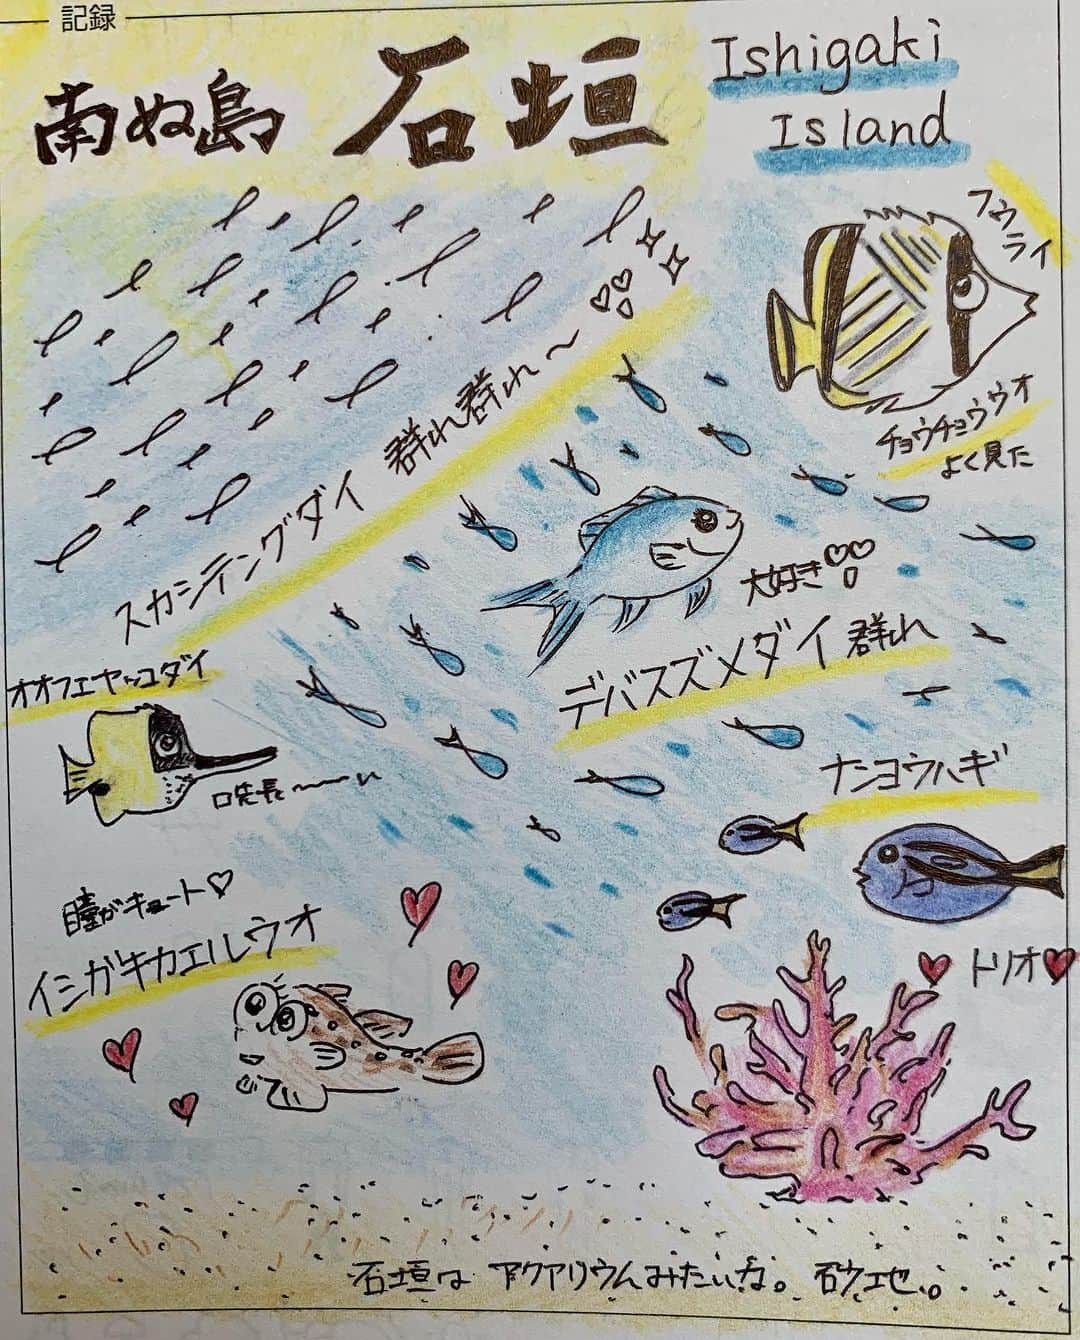 記録
南ぬ島 石垣
Ishigaki
Island
フウライ
チョウチョウウオ
よく見た
スカシテングダイ 群れ群れ〜
大好き
デバスズメダイ 群れ
オオフエヤッコダイ
口先長〜〜い
ナンヨウハギ
トリオ
瞳がキュート
イシガキカエルウオ
石垣は アクアリウムみたいな。 砂地。